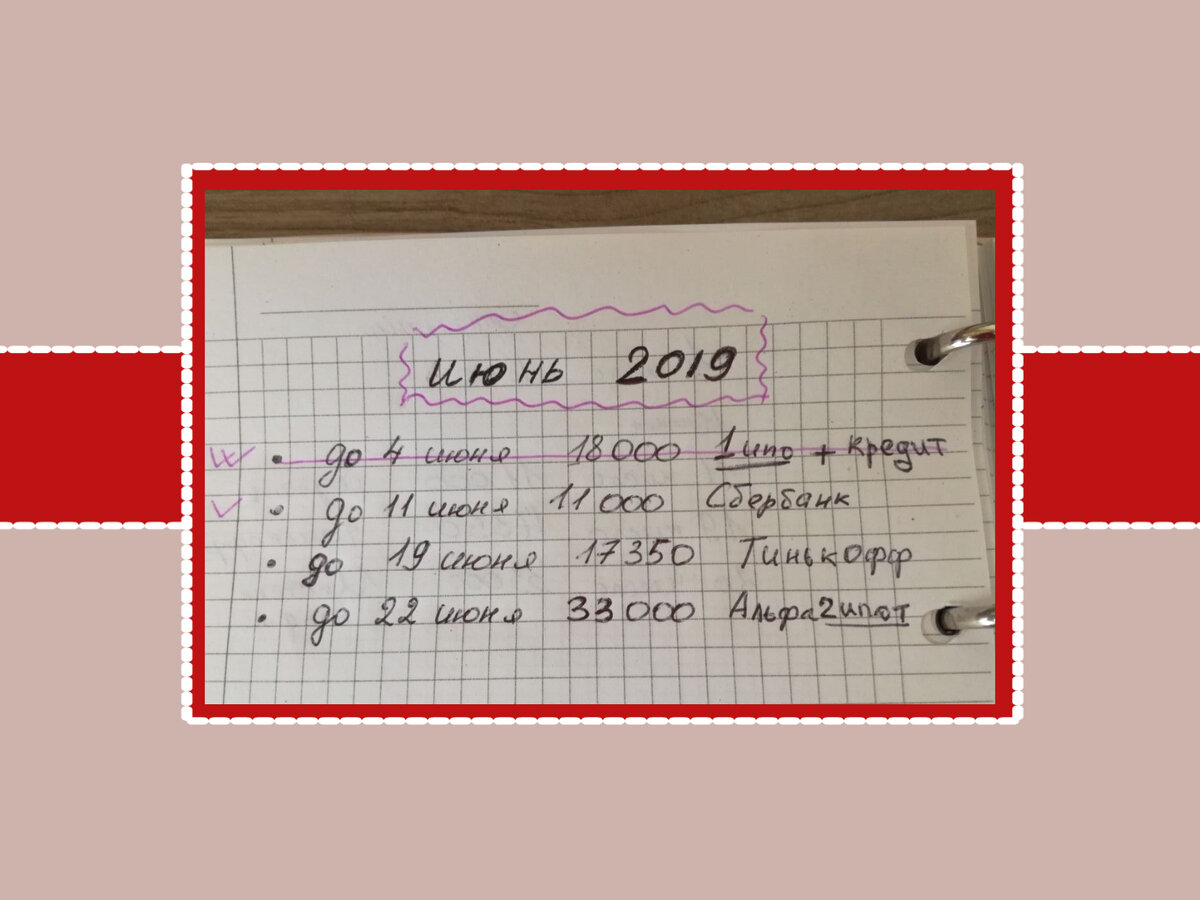 июнь 2019
• до 4 июня 18000 1 ипо + кредит
• до 11 июня 11000 Сбербанк
• до 19 июня 17350 Тинькофф
• до 22 июня 33000 Альфа 2 ипот